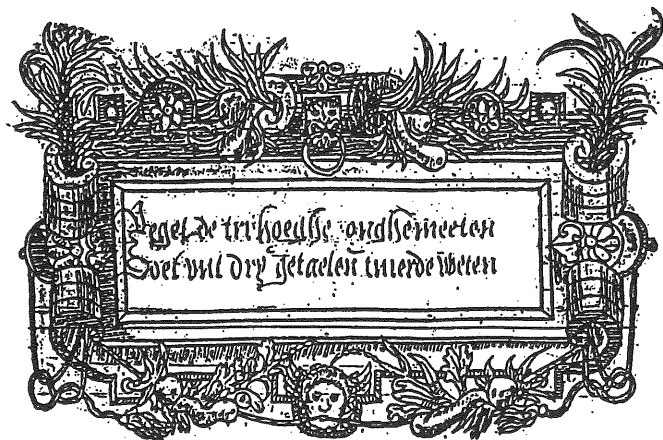 Regel de tri hoeghe onghemeeten
Doet wul dry getaelen twierde weten